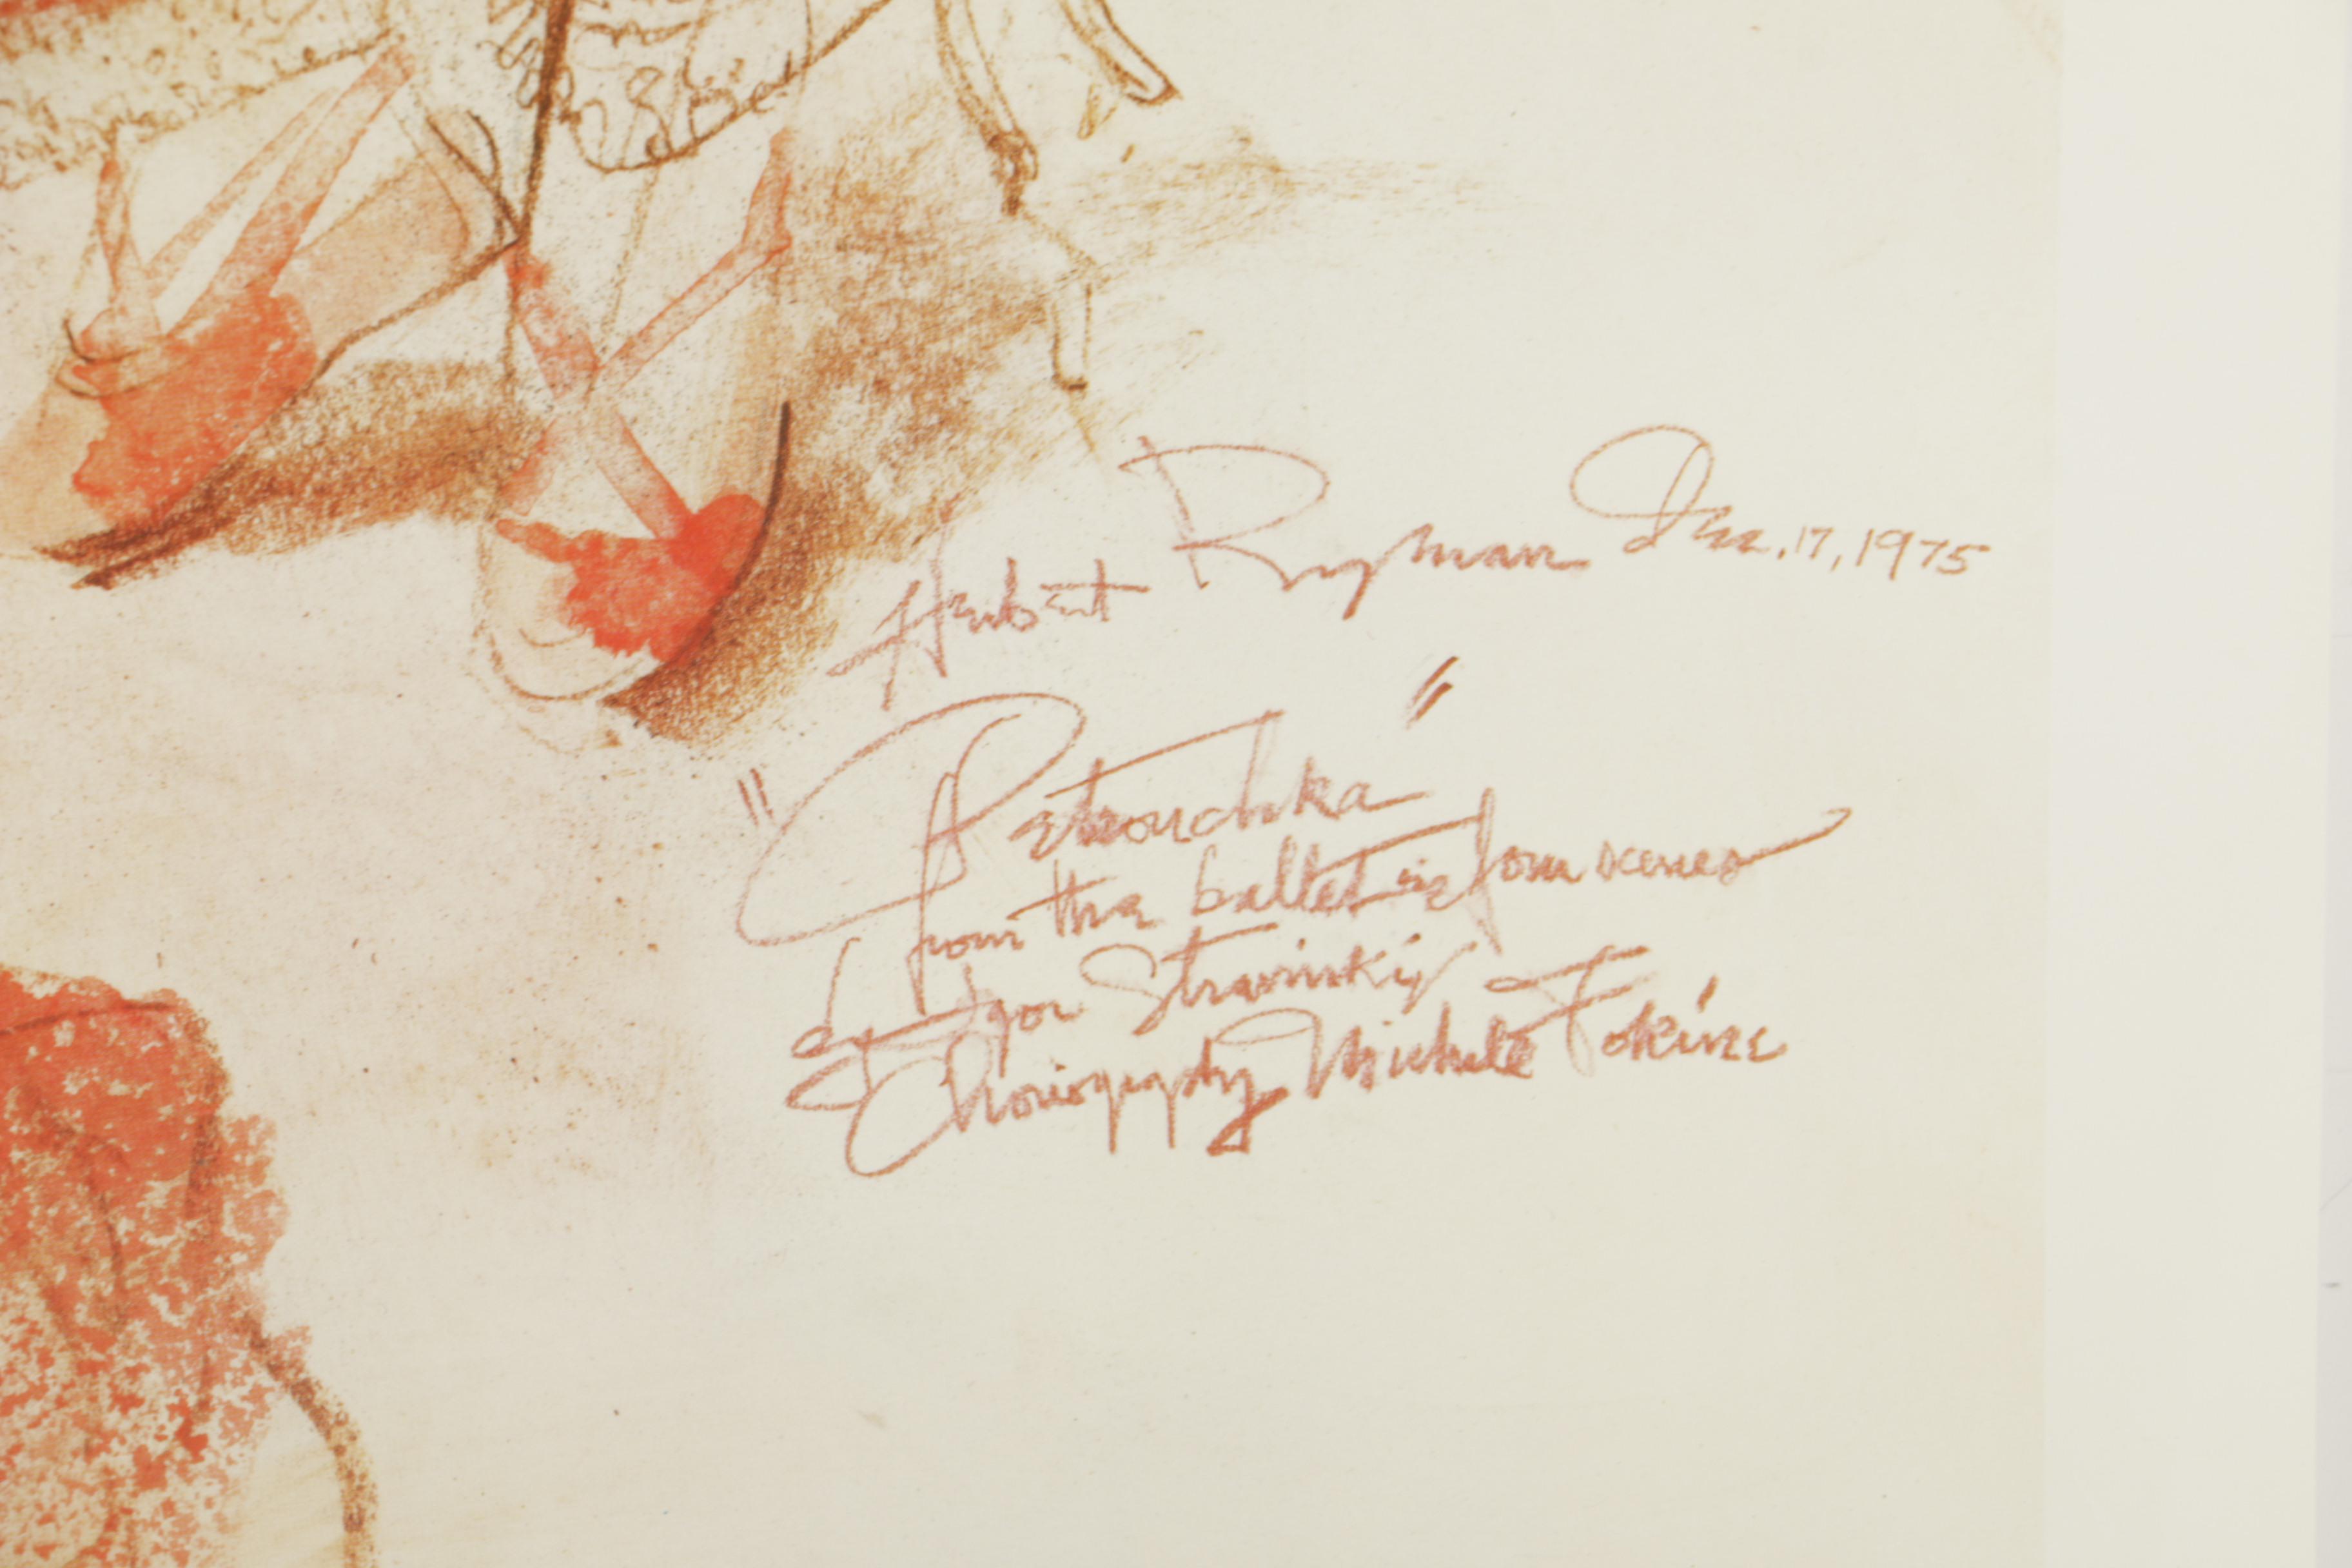 Herbert Ryman Dec. 17, 1975
"Petrouchka"
from the ballet in four scenes
by Igor Stravinsky
Choriogrgraphy Michele Fokine